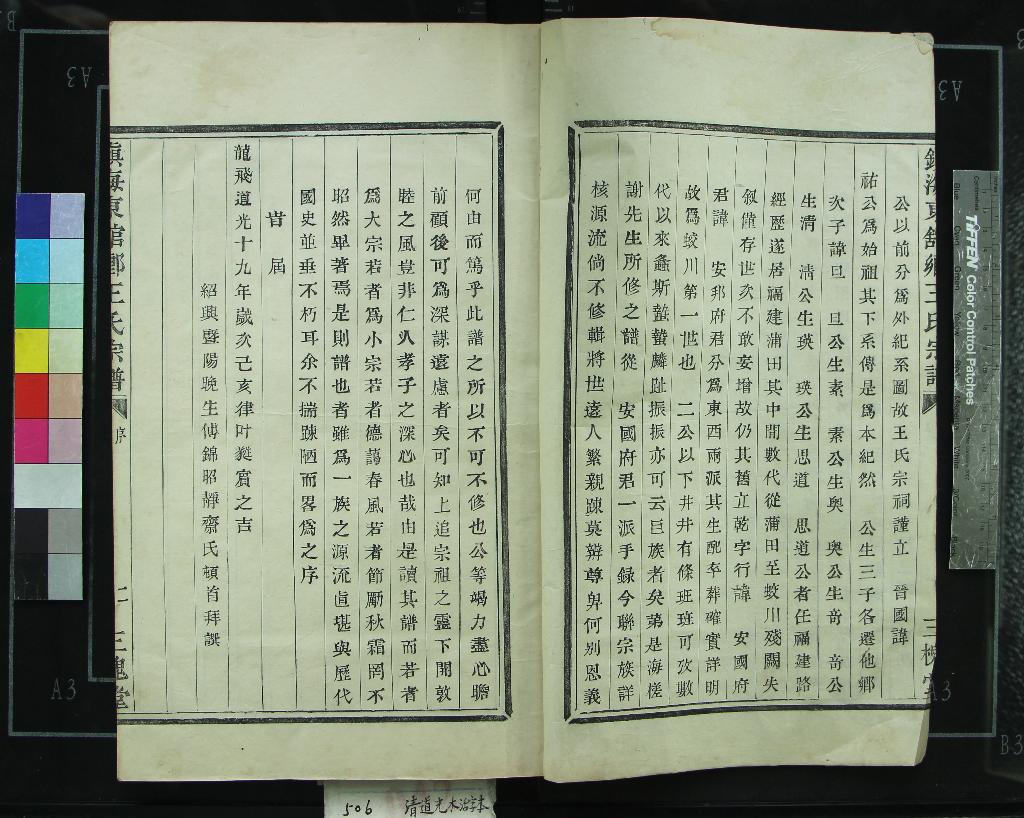 公以前分爲外紀系圖故王氏宗祠謹立 晉國諱
祐公爲始祖其下系傳是爲本紀然 公生三子各遷他鄉
次子諱旦 旦公生素 素公生奥 奥公生奇 奇公
生清 清公生瑛 瑛公生思道 思道公者任福建路
經歷遂居福建蒲田其中間數代從蒲田至蛟川殘闕失
敘僅存世次不敢妄增故仍其舊立乾字行諱 安國府
君諱 安邦府君分爲東西兩派其生配卒葬確實詳明
故爲蛟川第一世也 二公以下井井有條班班可攷數
代以來螽斯蟄蟄麟趾振振亦可云巨族者矣第是海槎
謝先生所修之譜從 安國府君一派手録今聯宗族詳
核源流倘不修輯將世遠人繁親踈莫辨尊卑何别恩義
何由而篤乎此譜之所以不可不修也公等竭力盡心瞻
前顧後可爲深謀遠慮者矣可知上追宗祖之靈下開敦
睦之風豈非仁人孝子之深心也哉由是讀其譜而若者
爲大宗若者爲小宗若者德藹春風若者節勵秋霜罔不
昭然畢著焉是則譜也者雖爲一族之源流直堪與歷代
國史並垂不朽耳余不揣踈陋而畧爲之序
旹 屆
龍飛道光十九年歲次己亥律叶蕤賓之吉
紹興曁陽晚生傅錦昭靜齋氏頓首拜譔
鎮海東舘鄉王氏宗譜 序 二 三槐堂
TIFFEN Color Control Patches
506 清道光木活字本
A3
B3